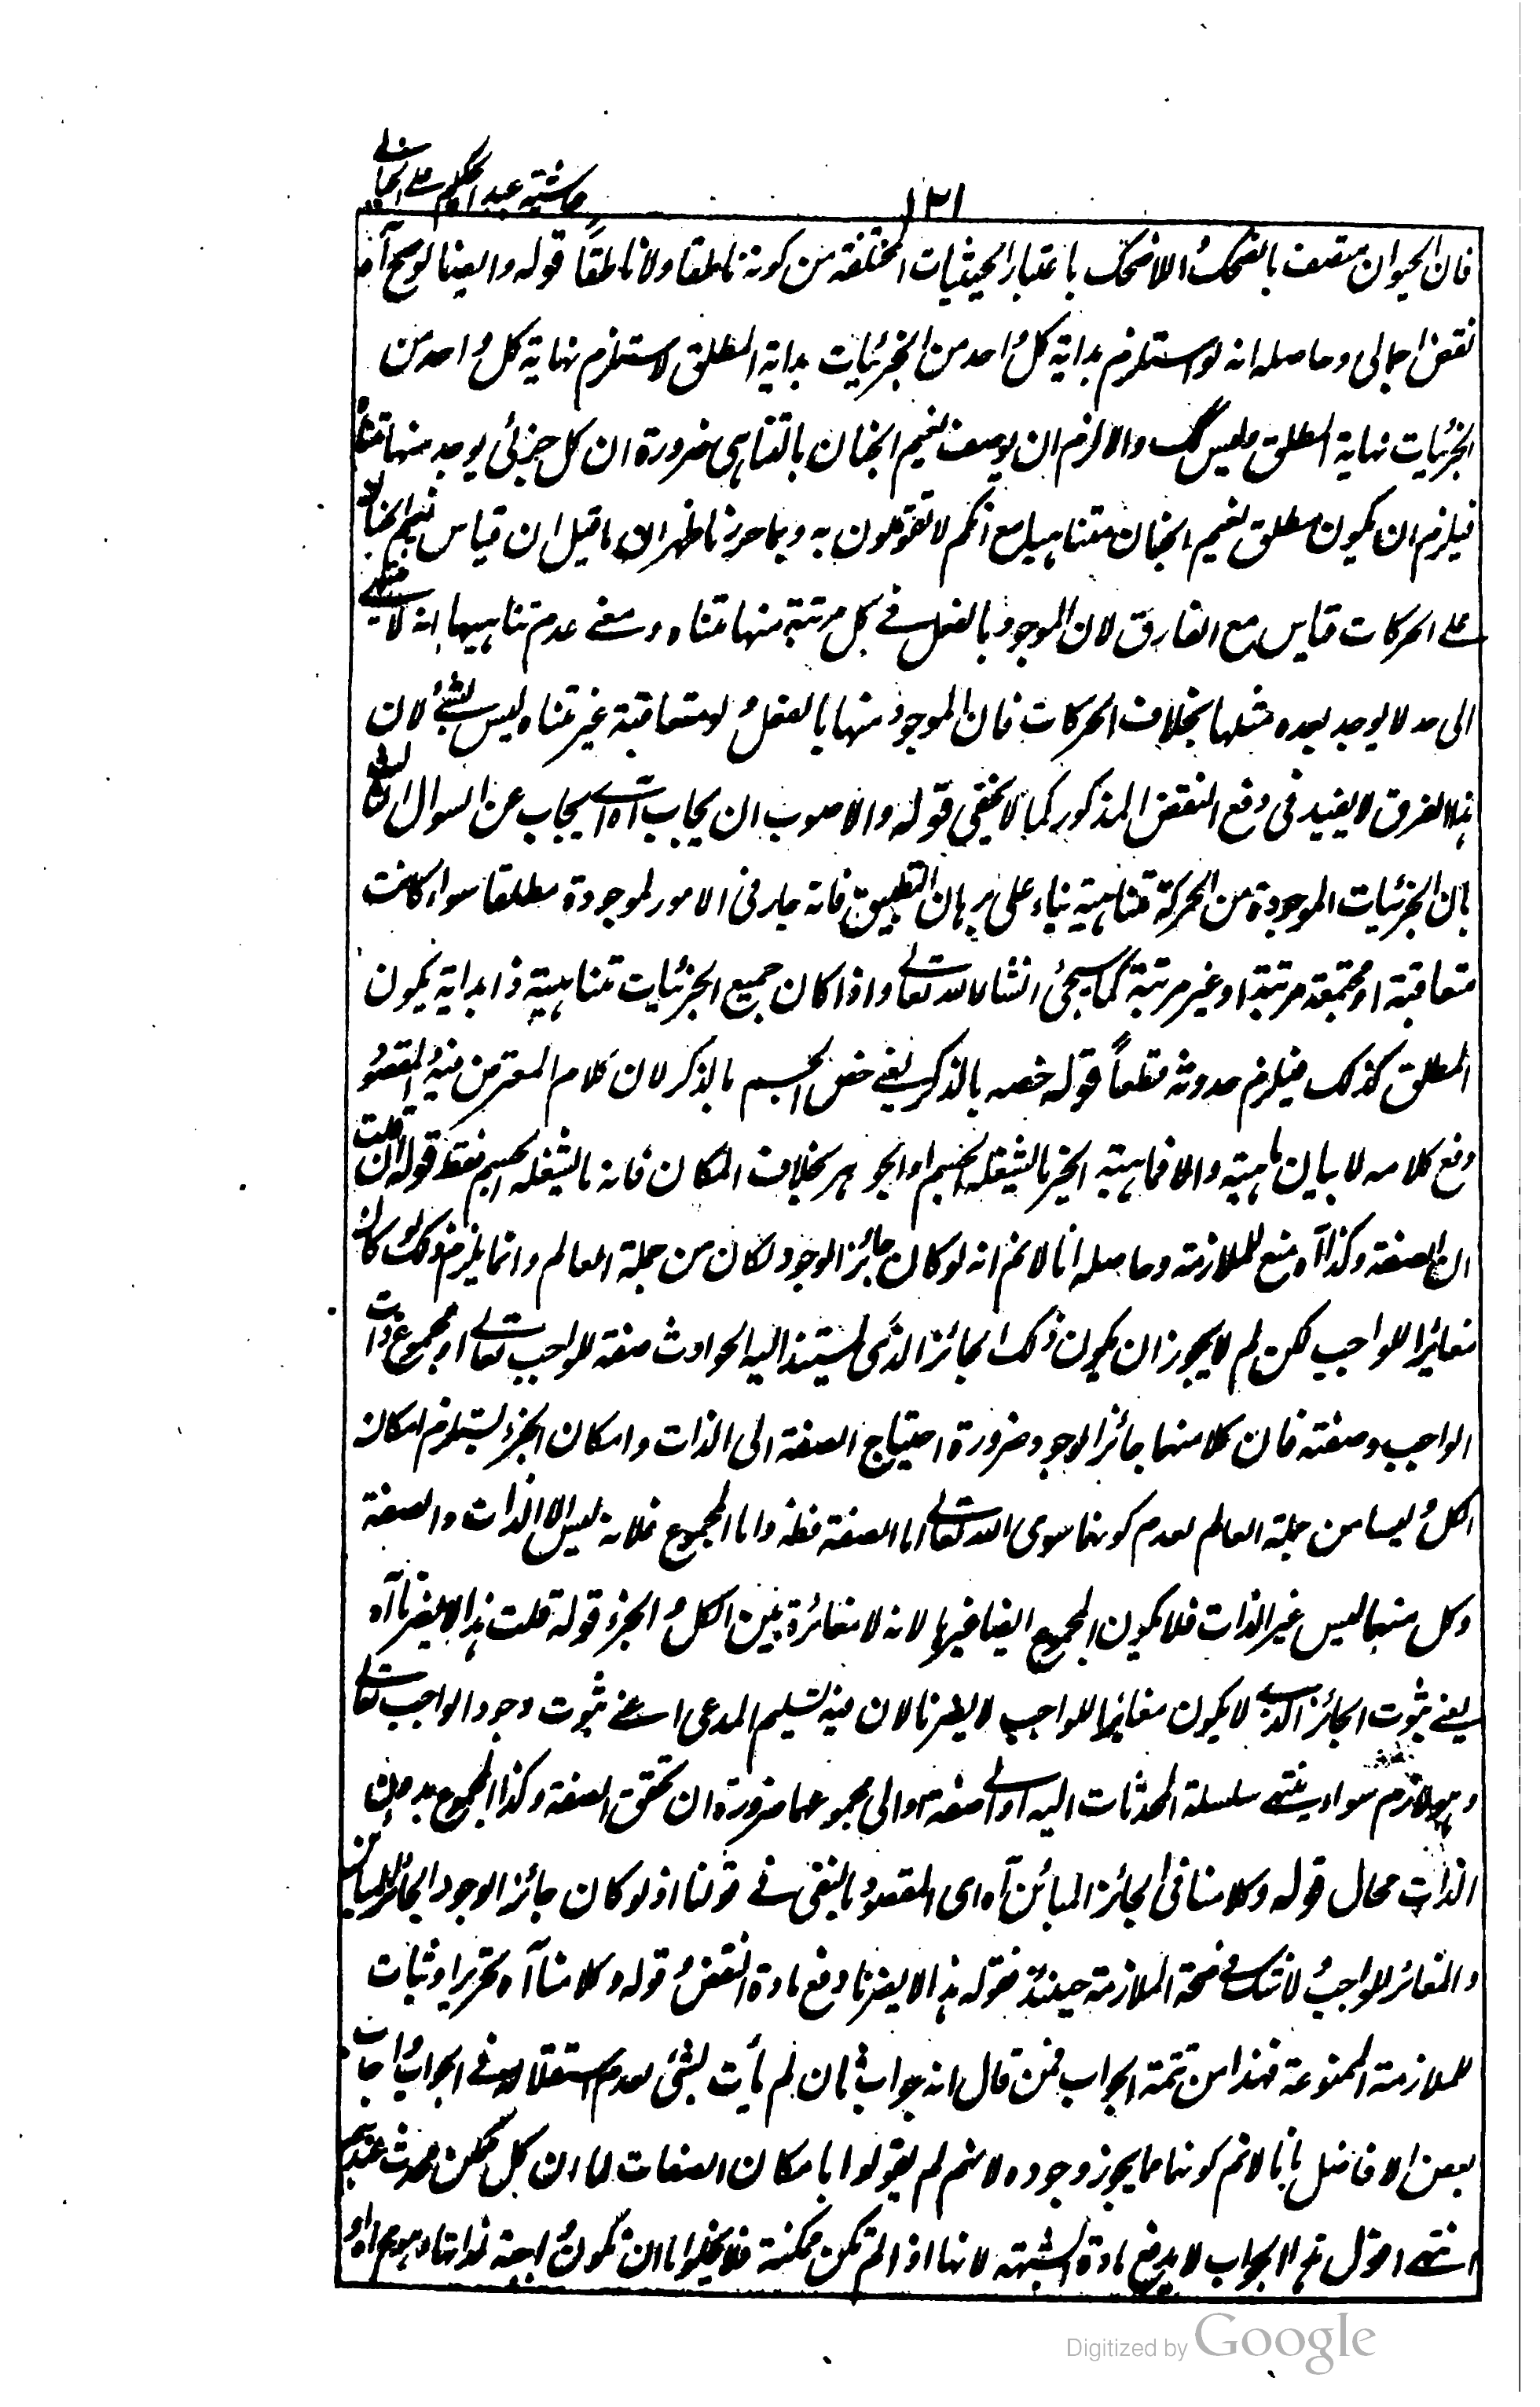 حاشیه عبد الحکیم علے الخیالے
١٣١
فان الحیوان متصف بالضحک واللاضحک باعتبار الحیثیات المختلفة من کونه ناطقا ولا ناطقاً قوله وایضا لو صح آه
نقض اجمالی وحاصله انه لو استلزم بدایة کل واحد من الجزئیات بدایة المطلق لاستلزم نهایة کل واحد من
الجزئیات نهایة المطلق ولیس کک والا لزم ان یوصف نعیم الجنان بالتناهی ضرورة ان کل جزئی یوجد منها متناه
فیلزم ان یکون مطلق نعیم الجنان متناهیا مع انکم لا تقولون به وبما حررنا ظهر ان ما قیل ان قیاس نعیم الجنان
علے الحرکات قیاس مع الفارق لان الموجود بالفعل فے کل مرتبة منها متناه ومعنے عدم تناهیها انه لا ینتهے
الی حد لا یوجد بعده مثلها بخلاف الحرکات فان الموجود منها بالفعل ولو متعاقبة غیر متناه لیس بشئ لان
هذا الفرق لا یفید فی دفع النقض المذکور کما لا یخفی قوله والاصوب ان یجاب آه اے یجاب عن السوال الرابع
بان الجزئیات الموجودة من الحرکة متناهیة بناء علی برهان التطبیق فانه جار فی الامور الموجودة مطلقا سواء کانت
متعاقبة او مجتمعة مرتبة او غیر مرتبة کما سیجئ انشاء الله تعالے واذا کان جمیع الجزئیات متناهیة ذا بدایة یکون
المطلق کذلک فیلزم حدوثه قطعاً قوله خصه بالذکر یعنے خص الجسم بالذکر لان کلام المعترض فیه والمقصود
دفع کلامه لا بیان ماهیته والا فماهیة الحیز ما یشغله الجسم او الجوهر بخلاف المکان فانه ما یشغله الجسم فقط قوله ان قلت
ان الصفة وکذا آه منع للملازمة وحاصله انا لا نم انه لو کان جائز الوجود لکان من جملة العالم وانما یلزم ذلک لو کان
مغائرا للواجب لکن لم لا یجوز ان یکون ذلک الجائز الذی یستند الیه الحوادث صفة للواجب تعالے او مجموع ذات
الواجب وصفته فان کلا منهما جائز الوجود ضرورة احتیاج الصفة الی الذات وامکان الجزء یستلزم امکان
الکل ولیسا من جملة العالم لعدم کونهما سوی الله تعالے اما الصفة فظ واما المجموع فلانه لیس الا الذات والصفة
وکل منهما لیس غیر الذات فلا یکون المجموع ایضا غیرها لانه لا مغائرة بین الکل والجزء قوله قلت هذا لا یضرنا آه
یعنے ثبوت الجائز الذے لا یکون مغائرا للواجب لا یضرنا لان فیه تسلیم المدعی اعنے ثبوت وجود الواجب تعالے
وهو لازم سواء ینتهے سلسلة المحدثات الیه او الے صفته او الی مجموعهما ضرورة ان تحقق الصفة وکذا المجموع بدون
الذات محال قوله وکلامنا فی الجائز المبائن آه ای المقصود بالنفی فے قولنا اذ لو کان جائز الوجود الجائز المبائن
والمغائر للواجب ولا شک فے صحة الملازمة حینئذ فقوله هذا لا یضرنا دفع مادة النقض وقوله وکلامنا آه تحریر واثبات
للملازمة الممنوعة فهذا من تتمة الجواب فمن قال انه جواب ثان لم یأت بشئ لعدم استقلاله فے الجواب واجاب
بعض الافاضل بانا لا نم کونها مما یجوز وجوده لانهم لم یقولوا بامکان الصفات لما ان کل ممکن محدث عندهم
انتهے اقول هذا الجواب لا یدفع مادة الشبهة لانها اذا لم تکن ممکنة فلا یخلوا اما ان تکون واجبة لذاتها وهو مح او
Digitized by Google